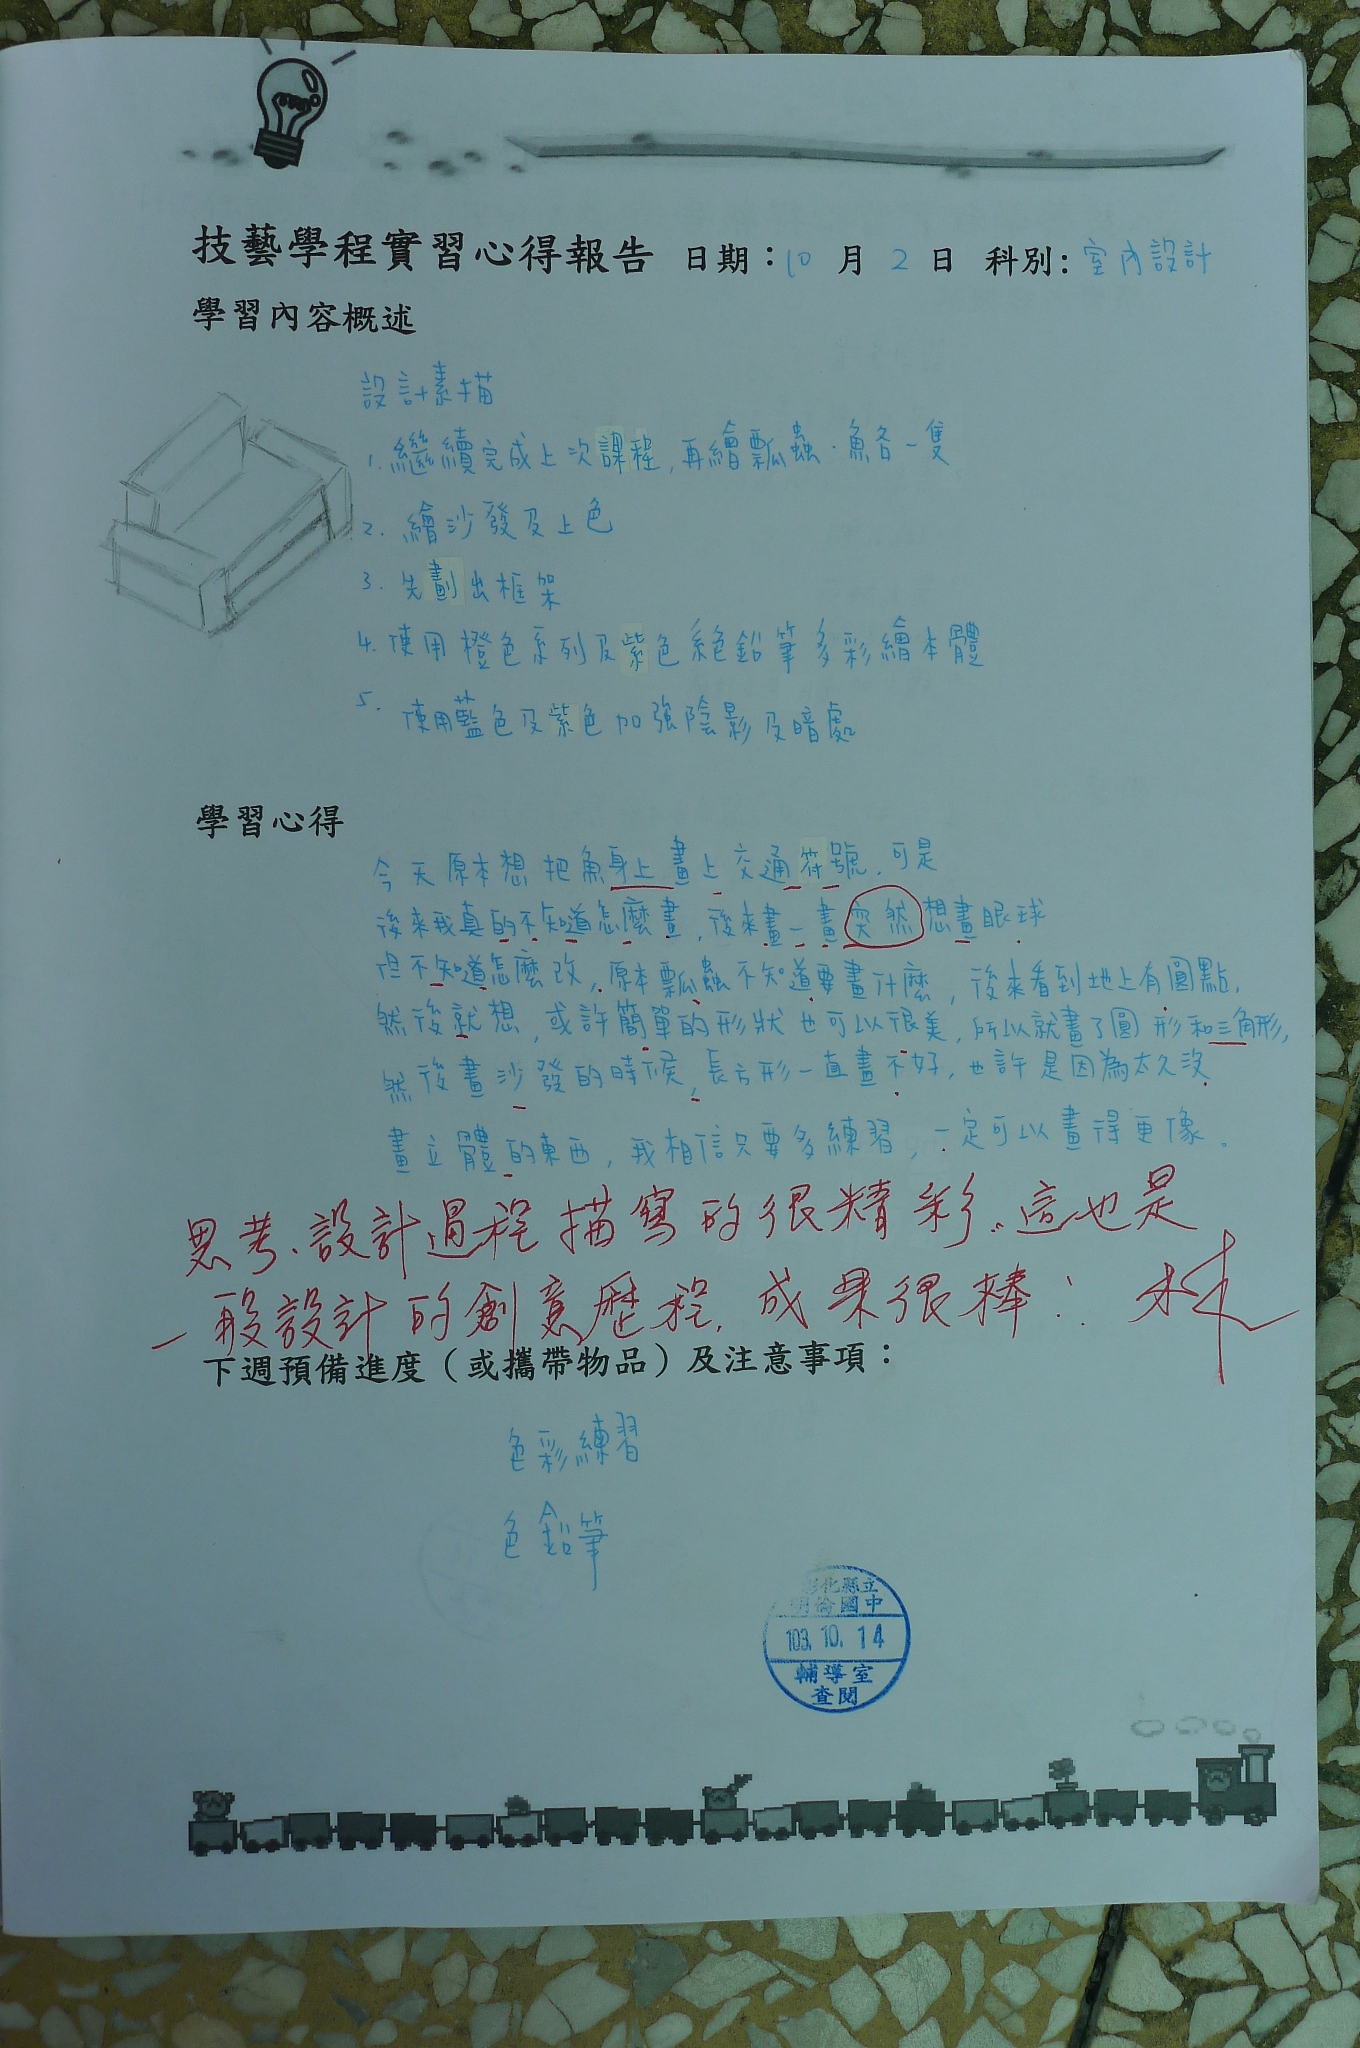 技藝學程實習心得報告 日期：10 月 2 日 科別：室內設計
學習內容概述
設計素描
1. 繼續完成上次課程,再繪瓢蟲.魚各一隻
2. 繪沙發及上色
3. 先劃出框架
4. 使用橙色系列及紫色色鉛筆多彩繪本體
5. 使用藍色及紫色加強陰影及暗處
學習心得
今天原本想把魚身上畫上交通符號,可是
後來我真的不知道怎麼畫,後來畫一畫突然想畫眼球
但不知道怎麼改,原本瓢蟲不知道要畫什麼,後來看到地上有圓點,
然後就想,或許簡單的形狀也可以很美,所以就畫了圓形和三角形,
然後畫沙發的時候,長方形一直畫不好,也許是因為太久沒
畫立體的東西,我相信只要多練習,一定可以畫得更像。
思考、設計過程描寫的很精彩,這也是
一般設計的創意歷程,成果很棒! 林
下週預備進度（或攜帶物品）及注意事項：
色彩練習
色鉛筆
彰化縣立
明倫國中
103.10.14
輔導室
查閱